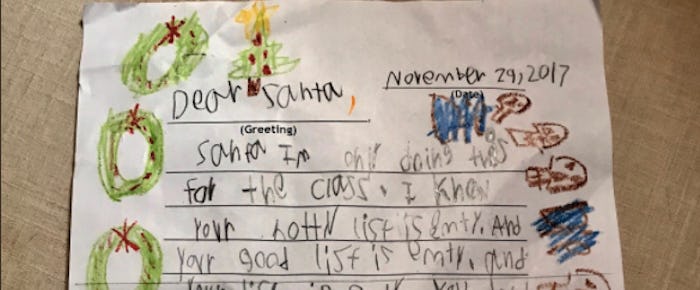 November 29, 2017
(Date)
Dear Santa,
(Greeting)
Santa Im only doing this
for the class. I know
your notty list is emty. And
your good list is emty. And